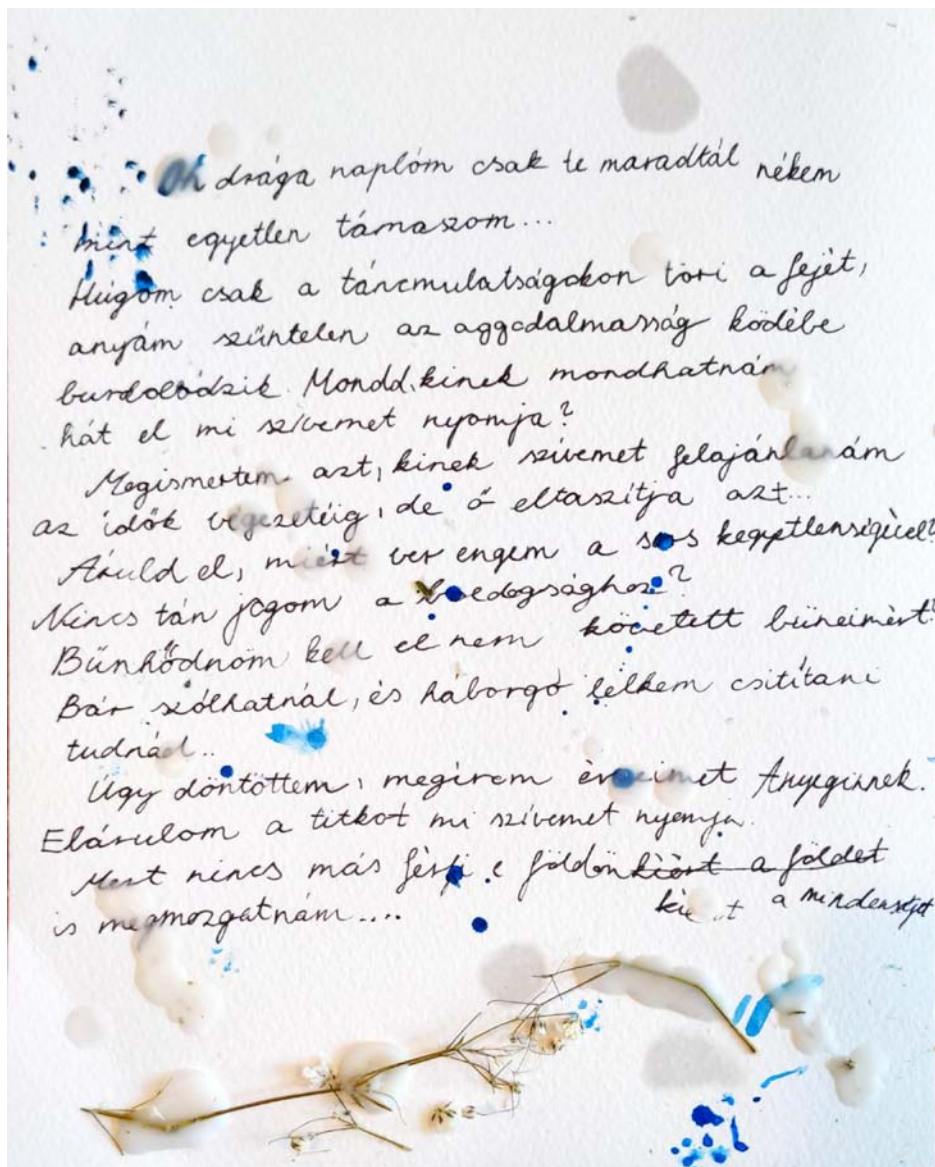 Oh drága naplóm csak te maradtál nékem
mint egyetlen támaszom...
Húgom csak a táncmulatságokon töri a fejét,
anyám szűntelen az aggodalmasság ködébe
burdolódzik. Mondd, kinek mondhatnám
hát el mi szívemet nyomja?
Megismertem azt, kinek szívemet felajánlanám
az idők végezetéig, de ő eltaszítja azt...
Áruld el, miért ver engem a sors kegyetlenségével?
Nincs tán jogom a boldogsághoz?
Bűnhődnöm kell el nem követett bűneimért?
Bár szólhatnál, és háborgó lelkem csitítani
tudnád..
Úgy döntöttem, megírom érzéseimet Anyeginnek.
Elárulom a titkot mi szívemet nyomja.
Mert nincs más férfi e földön kiért a földet
kiért a mindenséget
is megmozgatnám....